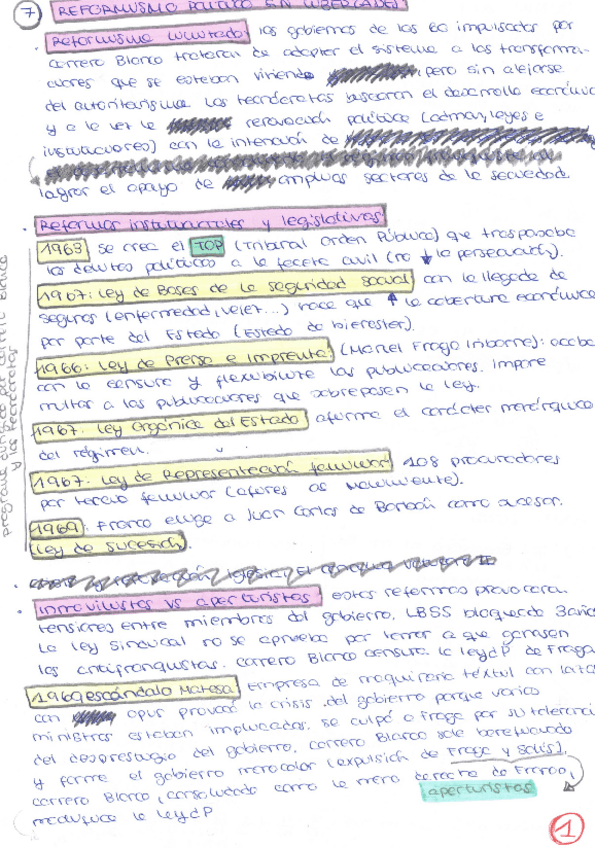 7 REFORMISMO POLÍTICO SIN LIBERTADES
· Reformismo limitado: los gobiernos de los 60 impulsados por
Carrero Blanco trataron de adaptar el sistema a las transforma-
ciones que se estaban viviendo, pero sin alejarse
del autoritarismo. Los tecnócratas buscaron el desarrollo económico
y a la vez la renovación política (admon, leyes e
instituciones) con la intención de
lograr el apoyo de amplios sectores de la sociedad.
· Reformas institucionales y legislativas
1963 se crea el TOP (Tribunal Orden Público) que traspasaba
los delitos políticos a la faceta civil (no ↓ la persecución).
1967: Ley de Bases de la seguridad social con la llegada de
seguros (enfermedad, vejez...) hace que ↑ la cobertura económica
por parte del Estado (Estado de bienestar).
1966: Ley de Prensa e Imprenta: (Manuel Fraga Iribarne): acaba
con la censura y flexibiliza las publicaciones. Impone
multas a las publicaciones que sobrepasen la ley.
1967. Ley Orgánica del Estado afirma el carácter monárquico
del régimen.
1967. Ley de Representación familiar 108 procuradores
por tercio familiar (afines al Movimiento).
1969. Franco elige a Juan Carlos de Borbón como sucesor.
(Ley de Sucesión).
programa dirigido por Carrero Blanco
y los tecnócratas
· Inmovilistas vs aperturistas: estas reformas provocaron
tensiones entre miembros del gobierno. LBSS bloqueada 3 años
La ley sindical no se aprueba por temor a que ganasen
los antifranquistas. Carrero Blanco censura la leydP de Fraga
1969 escándalo Matesa Empresa de maquinaria textil con lazos
con opus provocó la crisis del gobierno porque varios
ministros estaban implicados. Se culpó a Fraga por su tolerancia
del desprestigio del gobierno. Carrero Blanco sale beneficiado
y forma el gobierno monocolor (expulsión de Fraga y Solís).
Carrero Blanco, consolidado como la mano derecha de Franco,
aperturistas
modifica la leydP
1